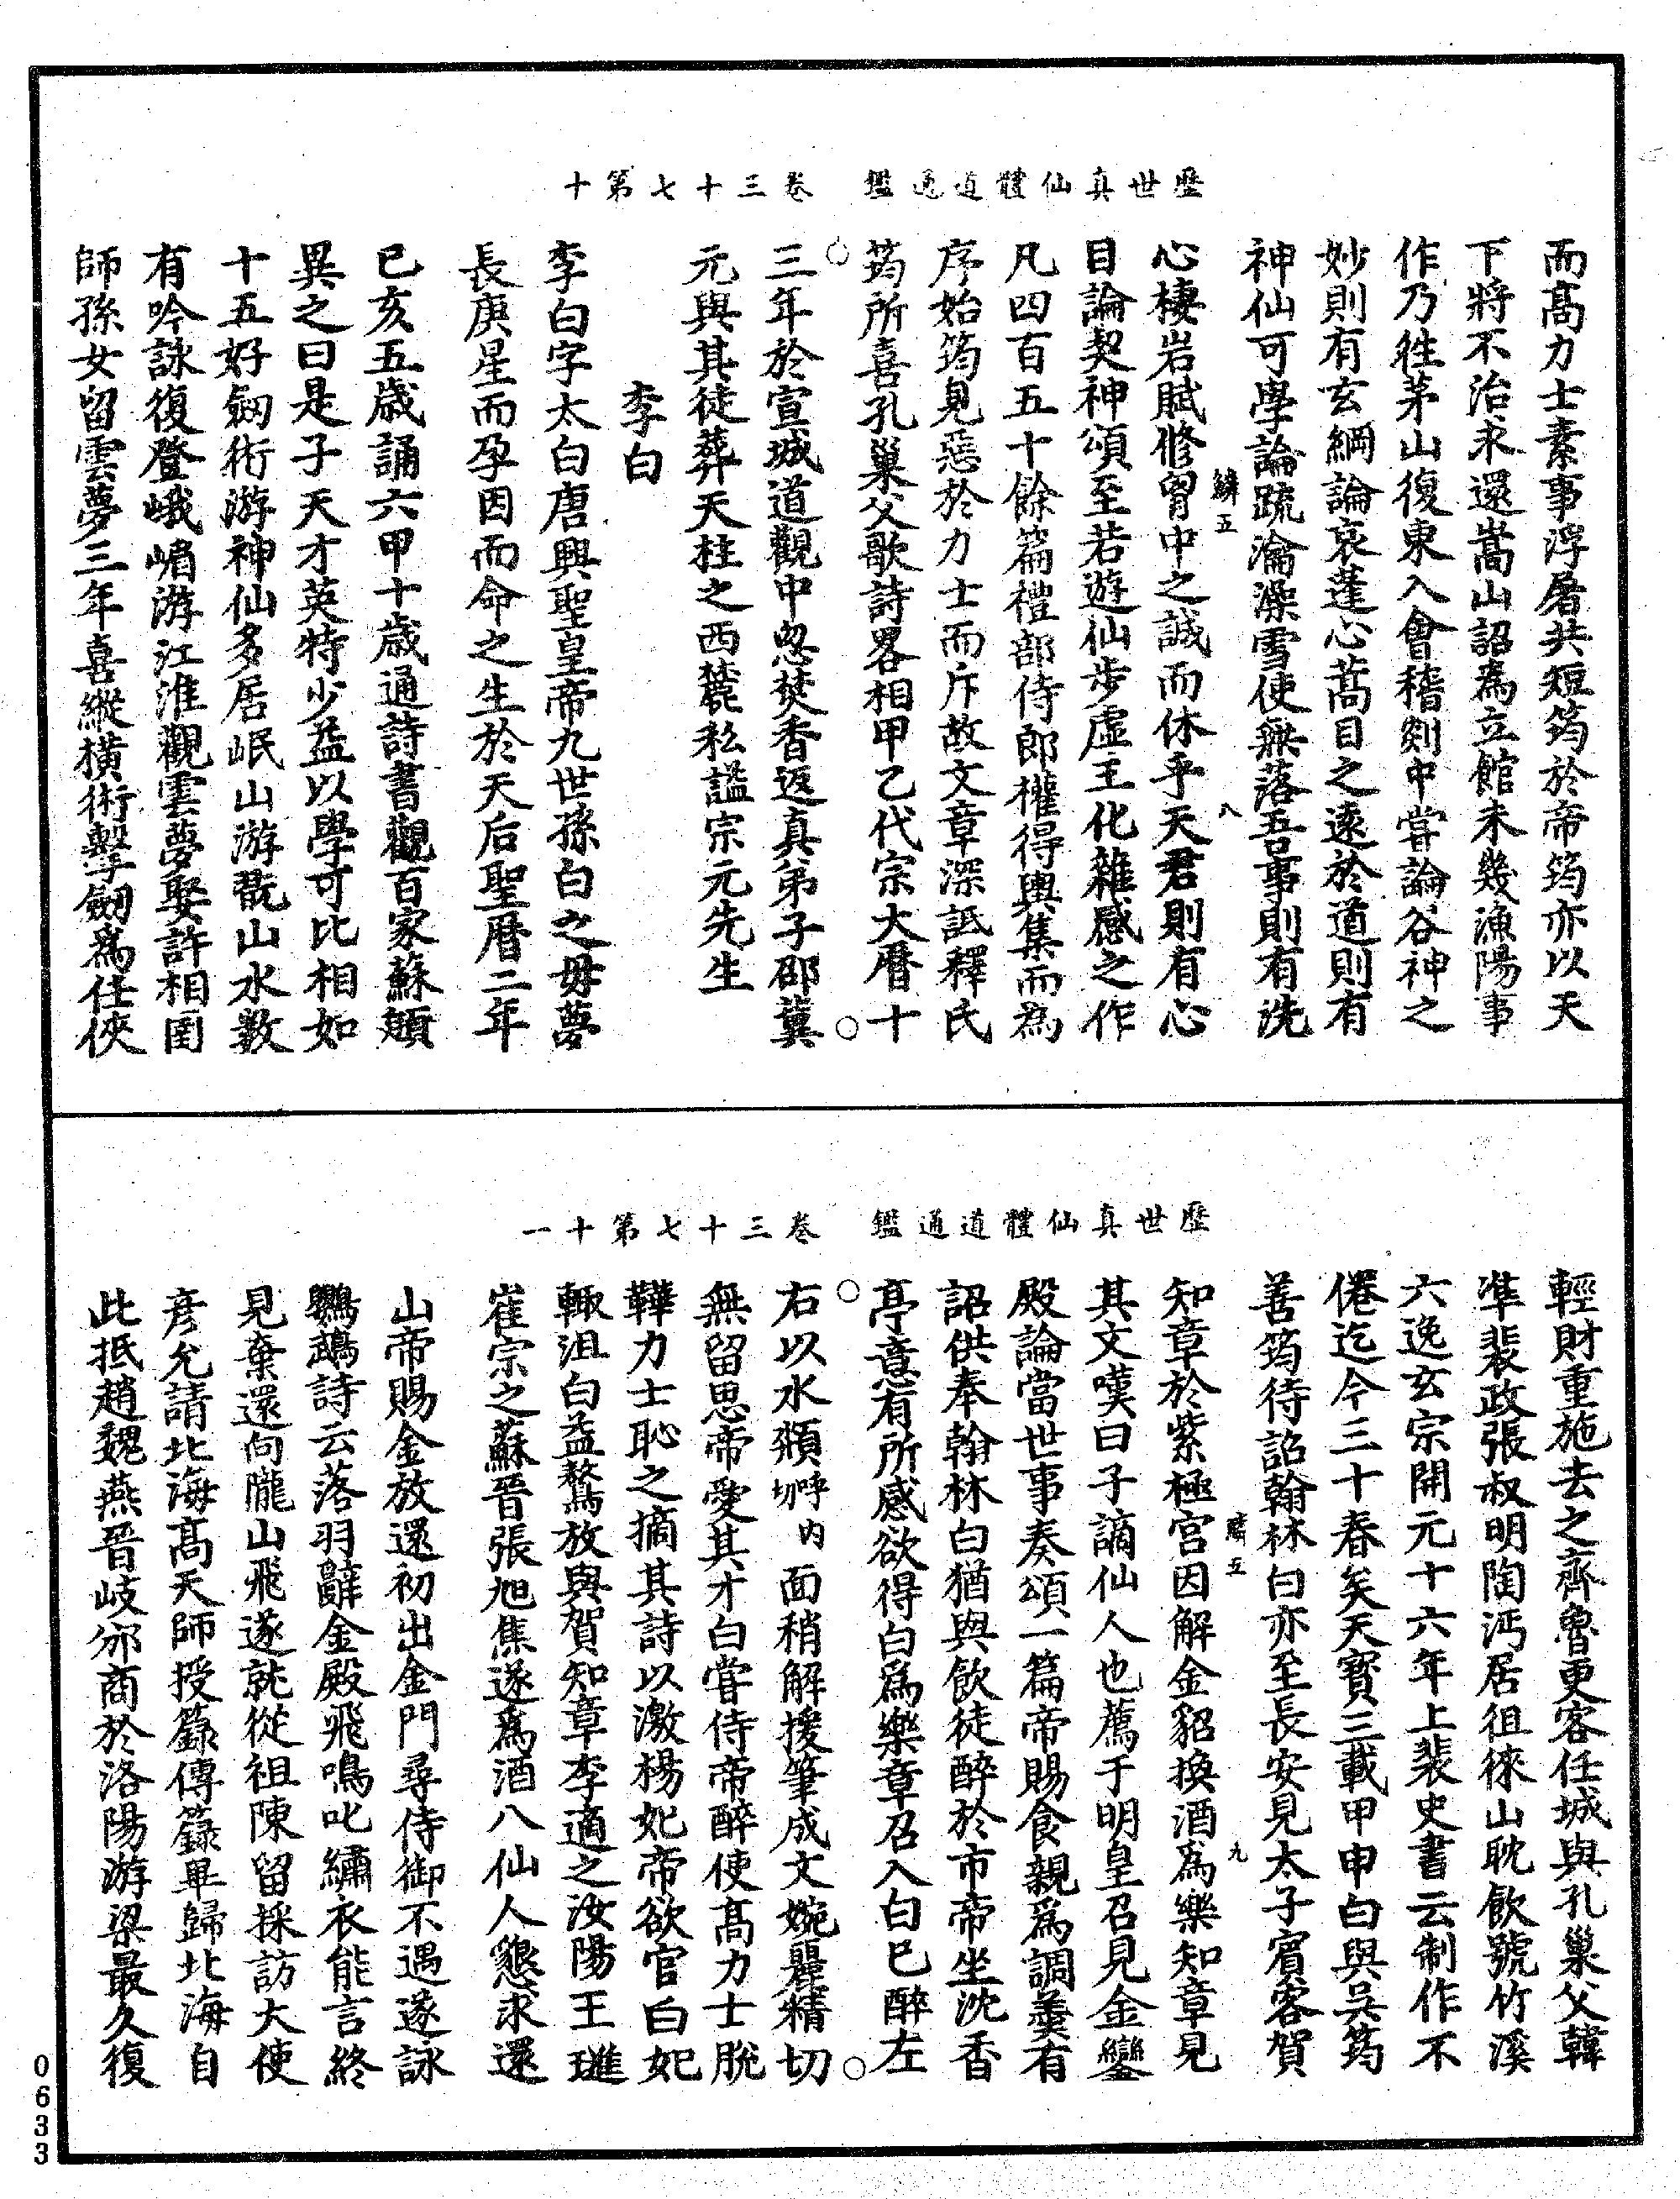 歷世真仙體道通鑑　卷三十七第十
而髙力士素事浮屠共短筠於帝筠亦以天
下將不治求還嵩山詔為立館未幾漁陽事
作乃徃茅山復東入會稽剡中嘗論谷神之
妙則有玄綱論哀蓬心蒿目之遠於道則有
神仙可學論䟽瀹澡雪使無落吾事則有洗
鱗五　八
心棲岩賦修胷中之誠而休乎天君則有心
目論契神頌至若遊仙步虛王化雜感之作
凡四百五十餘篇禮部侍郎權得輿集而為
序始筠見惡於力士而斥故文章深詆釋氏
筠所喜孔巢父歌詩畧相甲乙代宗大曆十
三年於宣城道觀中忽焚香返真弟子邵冀
元與其徒葬天柱之西麓私謚宗元先生
李白
李白字太白唐興聖皇帝九世孫白之毋夢
長庚星而孕因而命之生於天后聖曆二年
己亥五歲誦六甲十歲通詩書觀百家蘇頲
異之曰是子天才英特少益以學可比相如
十五好劒術游神仙多居岷山游翫山水數
有吟詠復登峨嵋游江淮觀雲夢娶許相圉
師孫女留雲夢三年喜縱橫術擊劒為任俠
歷世真仙體道通鑑　卷三十七第十一
輕財重施去之齊魯更客任城與孔巢父韓
準裴政張叔明陶沔居徂徠山耽飲號竹溪
六逸玄宗開元十六年上裴史書云制作不
倦迄今三十春矣天寳三載甲申白與吳筠
善筠待詔翰林白亦至長安見太子賓客賀
鱗五　九
知章於紫極宮因解金貂換酒為樂知章見
其文嘆曰子謫仙人也薦于明皇召見金鑾
殿論當世事奏頌一篇帝賜食親為調羹有
詔供奉翰林白猶與飲徒醉於市帝坐沈香
亭意有所感欲得白為樂章召入白巳醉左
右以水頮呼内切面稍解援筆成文婉麗精切
無留思帝愛其才白嘗侍帝醉使髙力士脫
鞾力士恥之摘其詩以激楊妃帝欲官白妃
輙沮白益驁放與賀知章李適之汝陽王璡
崔宗之蘇晉張旭焦遂為酒八仙人懇求還
山帝賜金放還初出金門尋侍御不遇遂詠
鸚鵡詩云落羽辭金殿飛鳴叱繡衣能言終
見棄還向隴山飛遂就從祖陳留採訪大使
彦允請北海髙天師授籙傳籙畢歸北海自
此抵趙魏燕晉岐邠商於洛陽游梁最久復
0633